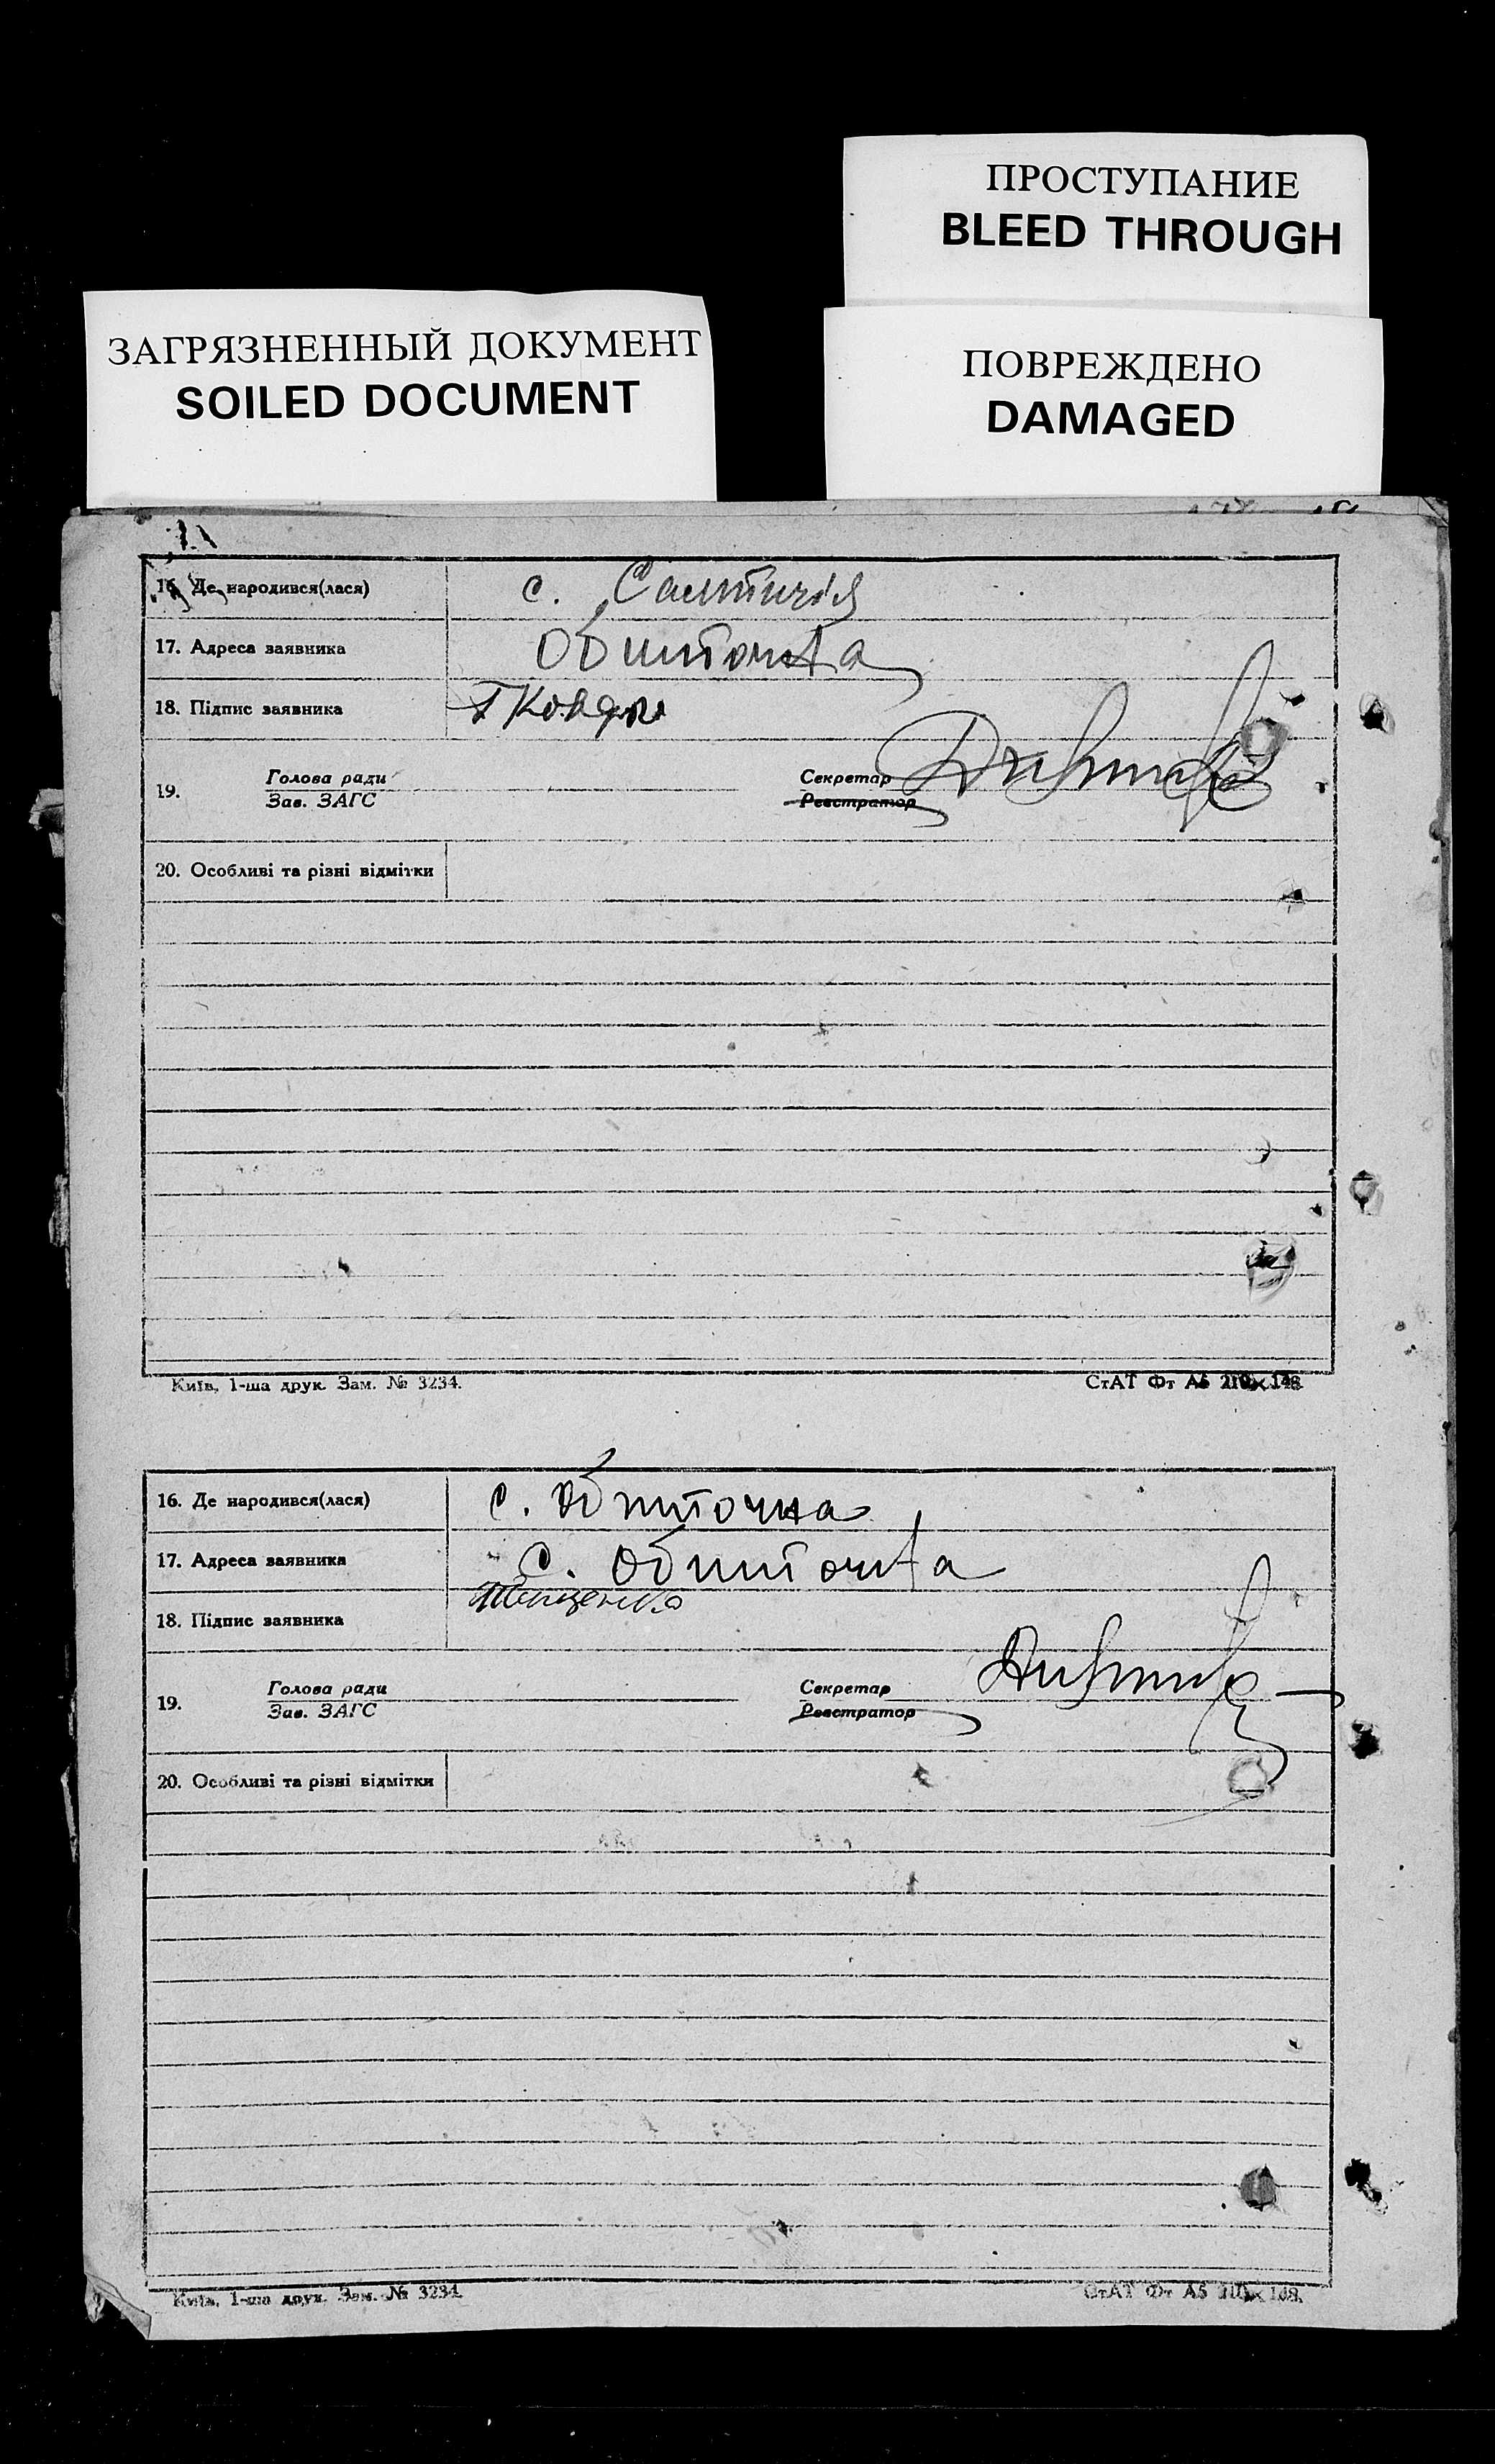 ПРОСТУПАНИЕ
BLEED THROUGH
ЗАГРЯЗНЕННЫЙ ДОКУМЕНТ
SOILED DOCUMENT
ПОВРЕЖДЕНО
DAMAGED
16. Де народився(лася) с. Салтичія
17. Адреса заявника Обиточна
18. Підпис заявника
19. Голова ради Секретар
Зав. ЗАГС Реєстратор
20. Особливі та різні відмітки
Київ, 1-ша друк. Зам. № 3234. СтАТ Фт А5 210×148.
16. Де народився(лася) с. Обиточна
17. Адреса заявника с. Обиточна
18. Підпис заявника
19. Голова ради Секретар
Зав. ЗАГС Реєстратор
20. Особливі та різні відмітки
Київ, 1-ша друк. Зам. № 3234. СтАТ Фт А5 210×148.